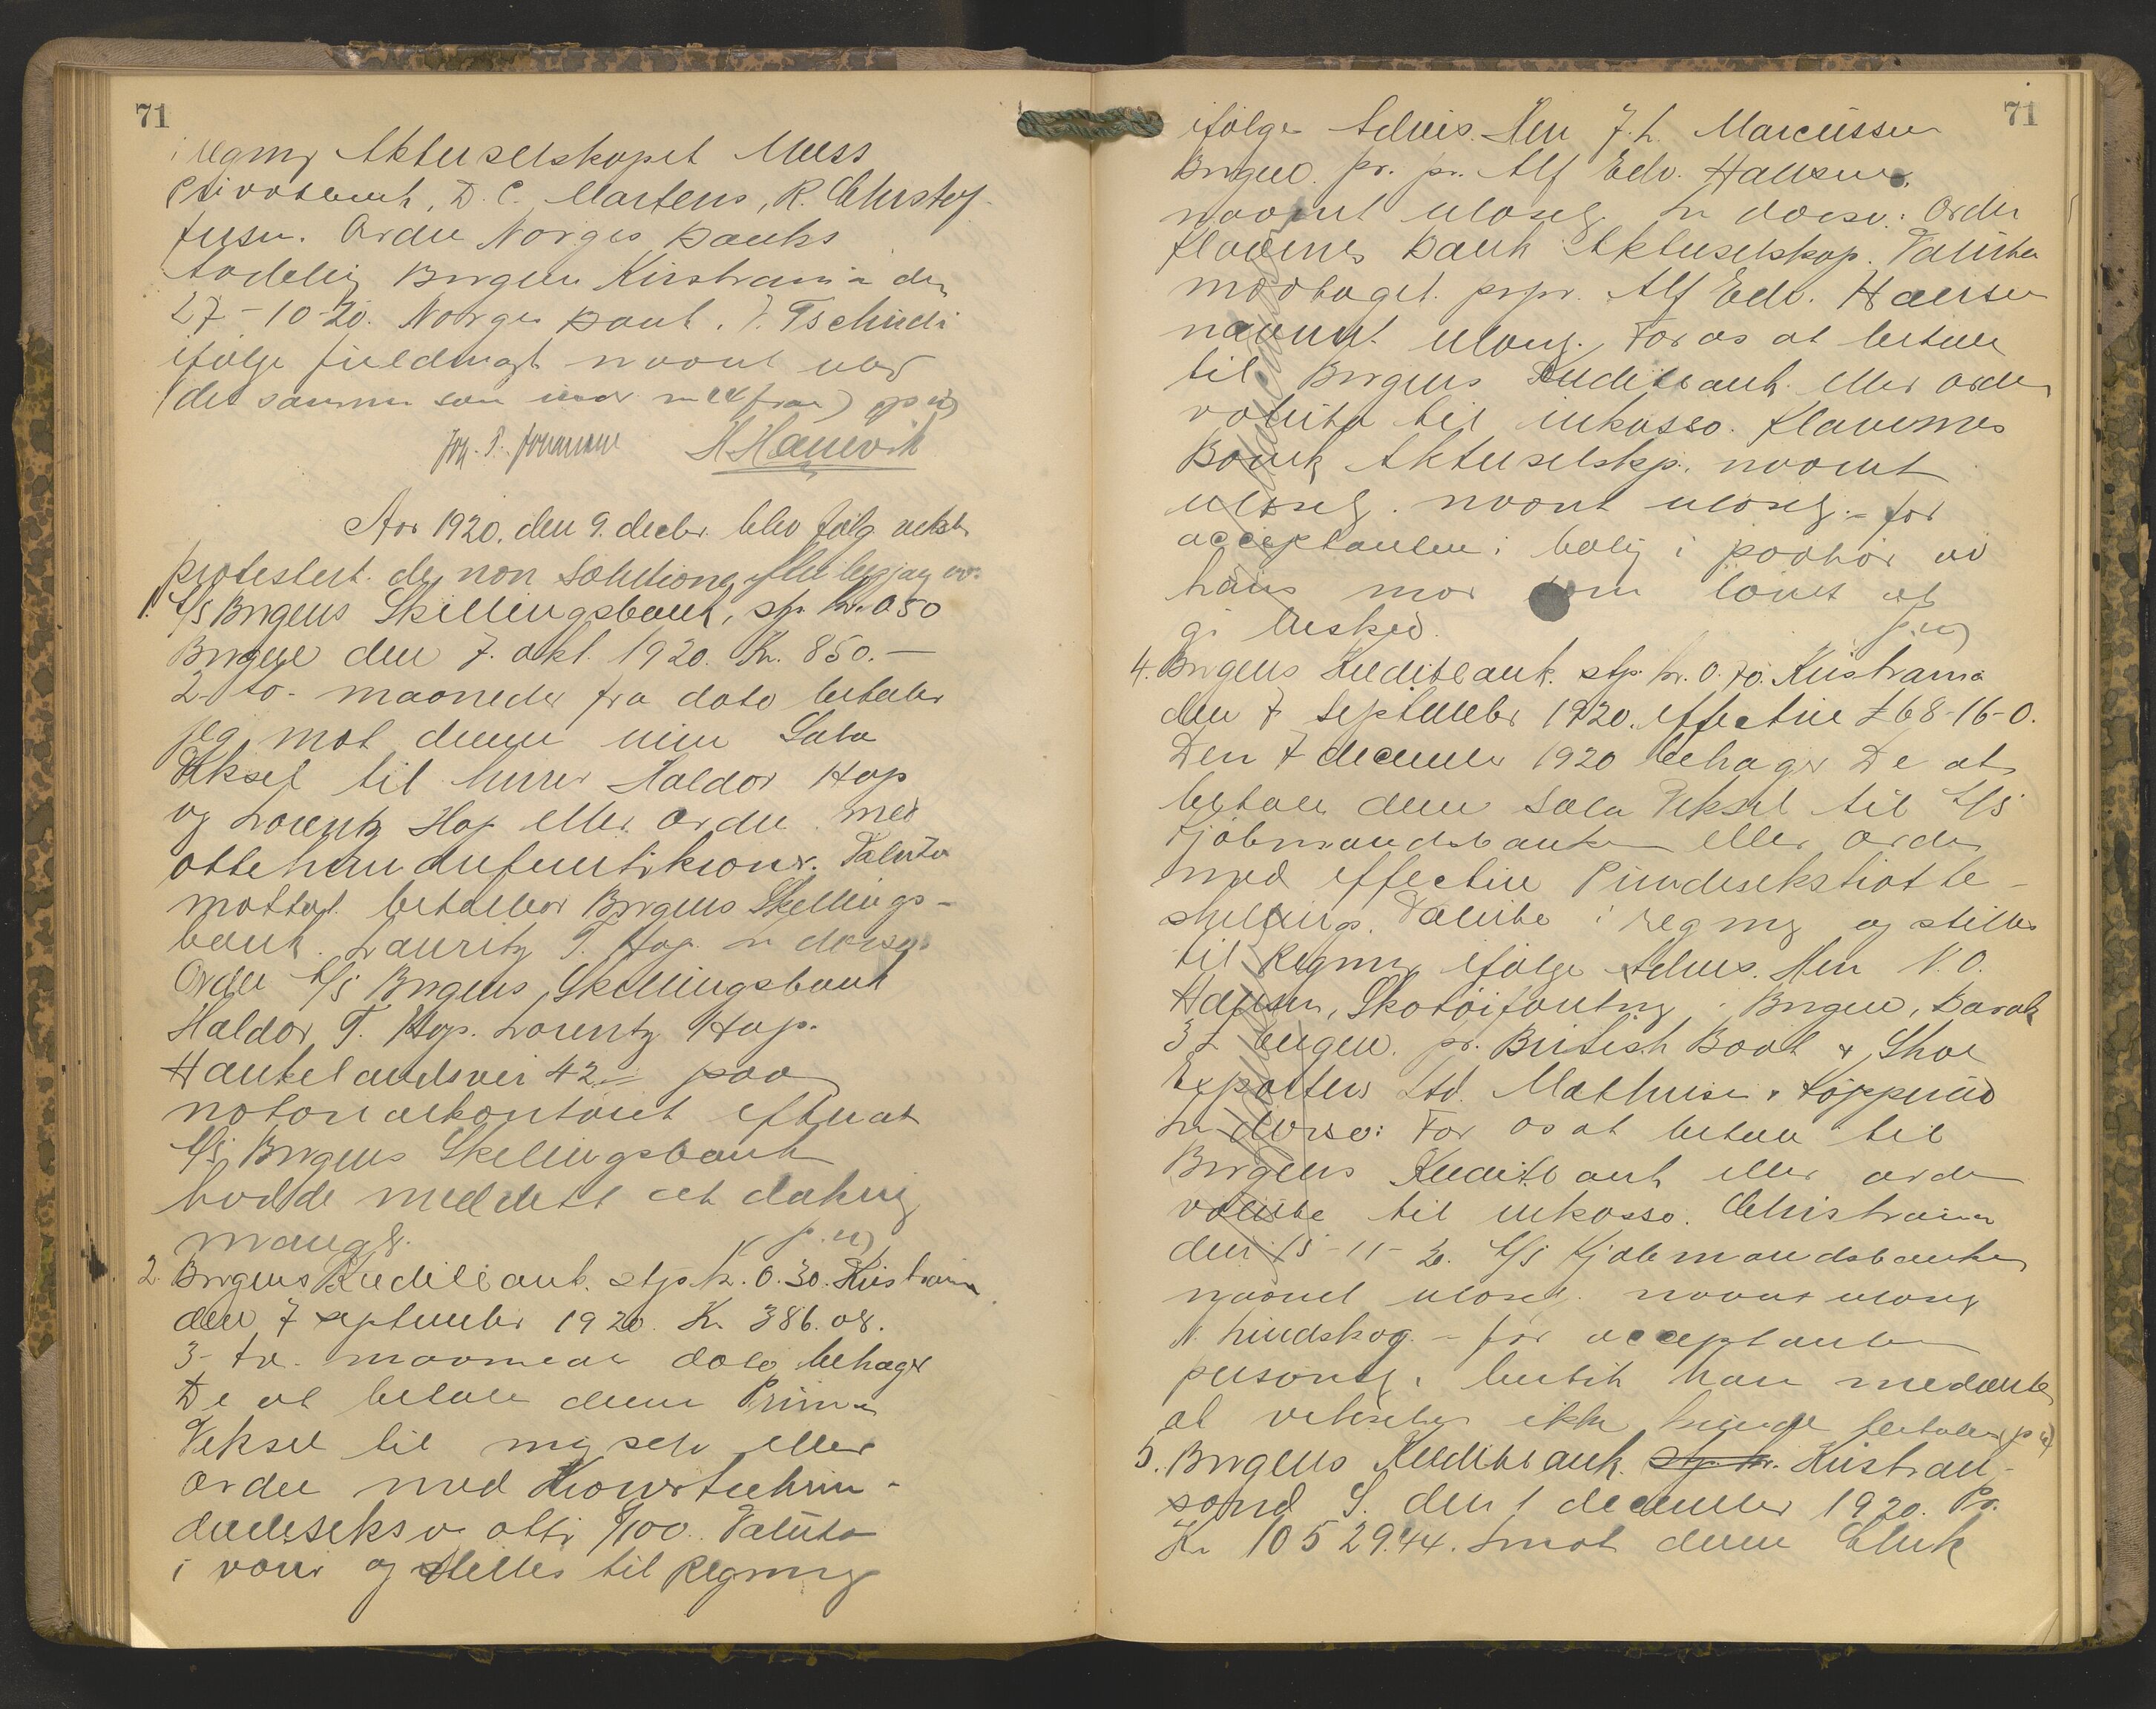 71
i regning Aktieselskapet Muss
Privatbank, D. C. Martens, R. Christof-
fersen. Ordre Norges Banks
Avdeling Bergen Kristiania den
27-10-20. Norges Bank. J. Tschudi
ifølge fuldmagt navnet
(det samme som
H Hauevik
Aar 1920. den 9. decbr. blev følg. veksler
protestert de non solutione efter begjæring av:
1. A/S Bergens Skillingsbank, stp. kr. 0.50
Bergen den 7. okt. 1920. Kr. 850.—
2- to- maaneder fra dato betaler
jeg mot denne min Sola
Veksel til herrer Haldor Hop
og Lorentz Hop eller ordre med
ottehundrefemtikroner. Valuta
mottat. betalbar Bergens Skillings-
bank. Lauritz T. Hop. in dorso:
Ordre A/S Bergens Skillingsbank
Haldor T. Hop. Lorentz Hop.
Haukelandsvei 42 — paa
notarialkontoret efterat
A/S Bergens Skillingsbank
hadde meddelt at dækning
mangl. p.u)
2. Bergens Kreditbank. stp. kr. 0.30. Kristiania
den 7 september 1920. Kr. 386.08.
3- tre- maaneder dato behager
De at betale denne Prima
Veksel til mig selv eller
ordre med Kroner trehun-
dredeseks og otti 8/100. Valuta
i varer og stilles til Regning
71
ifølge Advis. Herr J. L. Marcussen
Bergen. pr. pr. Alf Edv. Hansen.
navnet ulæsel. In dorso: Ordre
Flavenes Bank Aktieselskap. Valuta
modtaget. prpr. Alf Edv. Hansen
navnet ulæsel. For os at betale
til Bergens Kreditbank eller ordre
valuta til inkasso. Flavenes
Bank Aktieselskp. navnet
ulæsel. navnet ulæsel. - for
acceptanten i bolig i paahør av
hans mor som lovet at
gi besked. p.u)
4. Bergens Kreditbank. stp. kr. 0.70. Kristiania
den 7 september 1920. effective £ 68-16-0.
Den 7 december 1920 behager De at
betale denne Sola Veksel til A/S
Kjøbmandsbanken eller ordre
med effective Pundsekstiotte -
shillings. Valuta i regning og stilles
til Regning ifølge Advis. Herr N. O.
Hansen, Skotøiforretning, Bergen, Barak
3 L engen. pr. British Boot & Shoe
Exporters Ltd. Mathiesen & Köpperud
In dorso: For os at betale til
Bergens Kreditbank eller ordre
valuta til inkasso. Christiania
den 15-11-20. A/S Kjøbmandsbanken
navnet ulæsel. navnet ulæsel
N. Lindskog. - for acceptanten
personlig, hvortil han meddelte
at vekselen ikke kunde betales p.u)
5. Bergens Kreditbank. stp. kr. Kristian-
sand S. den 1 december 1920. Pr.
Kr. 10529.44. Imot denne Chek